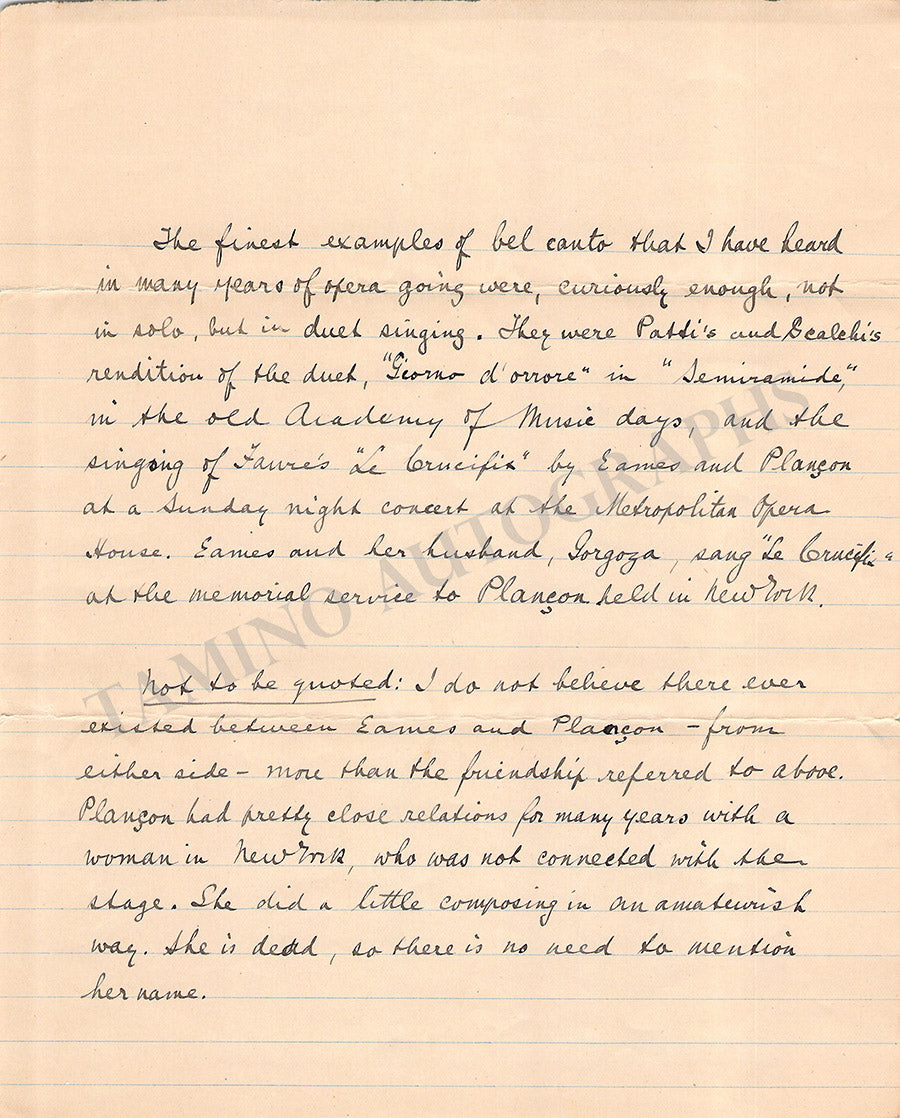 The finest examples of bel canto that I have heard
in many years of opera going were, curiously enough, not
in solo, but in duet singing. They were Patti's and Scalchi's
rendition of the duet, "Giorno d'orrore" in "Semiramide,"
in the old Academy of Music days, and the
singing of Faure's "Le Crucifix" by Eames and Plançon
at a Sunday night concert at the Metropolitan Opera
House. Eames and her husband, Gorgoza, sang "Le Crucifix"
at the memorial service to Plançon held in New York.
Not to be quoted: I do not believe there ever
existed between Eames and Plançon – from
either side – more than the friendship referred to above.
Plançon had pretty close relations for many years with a
woman in New York, who was not connected with the
stage. She did a little composing in an amateurish
way. She is dead, so there is no need to mention
her name.
TAMINO AUTOGRAPHS